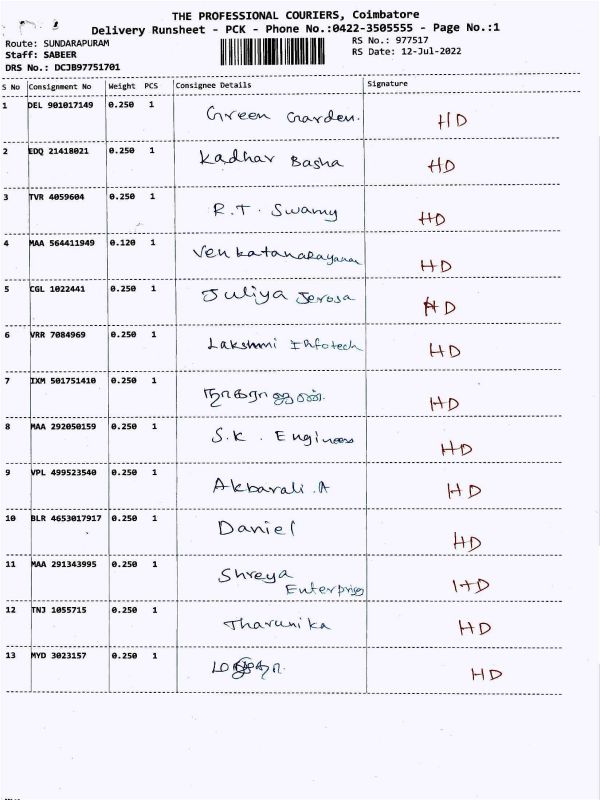 THE PROFESSIONAL COURIERS, Coimbatore
Delivery Runsheet - PCK - Phone No.:0422-3505555 - Page No.:1
Route: SUNDARAPURAM RS No.: 977517
Staff: SABEER RS Date: 12-Jul-2022
DRS No.: DCJB97751701
S No Consignment No Weight PCS Consignee Details Signature
1 DEL 901017149 0.250 1 Green Garden. HD
2 EDQ 21418021 0.250 1 Kadhar Basha HD
3 TVR 4059604 0.250 1 R.T. Swamy HD
4 MAA 564411949 0.120 1 Venkatanarayanan HD
5 CGL 1022441 0.250 1 Juliya Jerosa HD
6 VRR 7084969 0.250 1 Lakshmi Infotech HD
7 IXM 501751410 0.250 1 HD
8 MAA 292050159 0.250 1 S.K. Engineers HD
9 VPL 499523540 0.250 1 Akbarali.A HD
10 BLR 4653017917 0.250 1 Daniel HD
11 MAA 291343995 0.250 1 Shreya HD
Enterprises
12 TNJ 1055715 0.250 1 Tharunika HD
13 MYD 3023157 0.250 1 HD